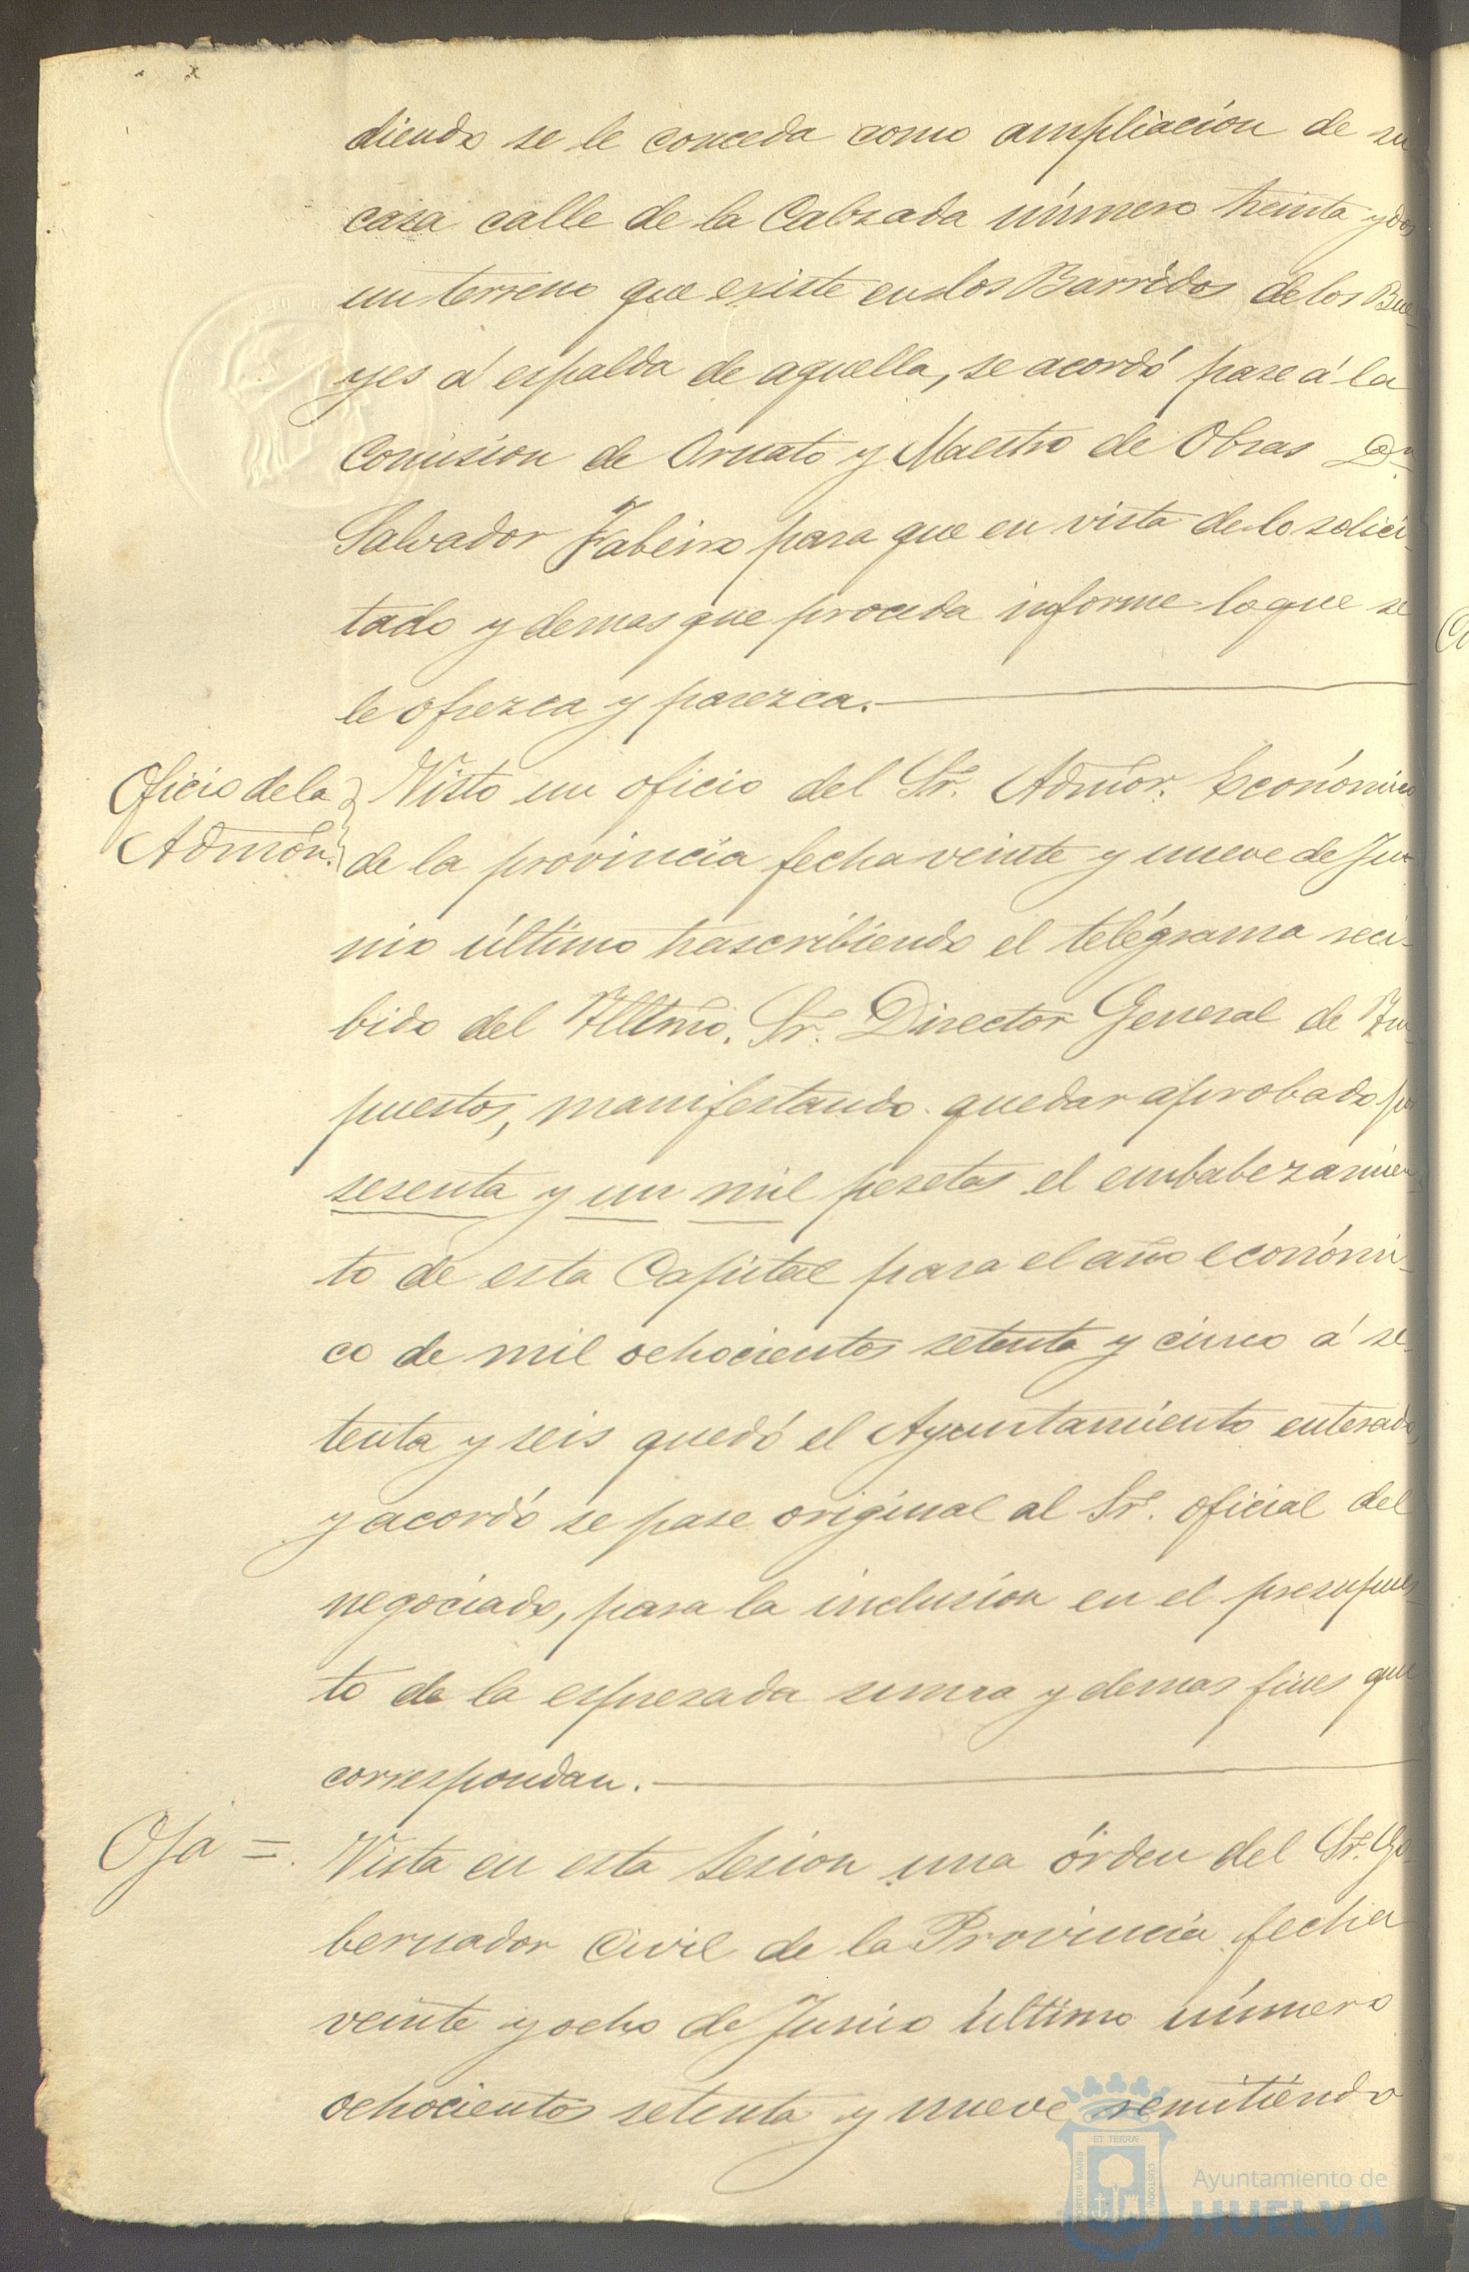 diendo se le conceda como ampliación de su
casa calle de la Calzada número treinta y dos
un terreno que existe en los Barridos de los Bue-
yes á espalda de aquella, se acordó pase á la
Comision de Ornato y Maestro de Obras Dn
Salvador Fabeiro para que en vista de lo solici-
tado y demas que proceda informe lo que se
le ofrezca y parezca.
Oficio de la
Admón.
Visto un oficio del Sr. Admor. Económico
de la provincia fecha veinte y nueve de Ju-
nio último trascribiendo el telégrama reci-
bido del Illtmo. Sr. Director General de Im-
puestos, manifestando quedar aprobado por
sesenta y un mil pesetas el embabezamien-
to de esta Capital para el año económi-
co de mil ochocientos setenta y cinco á se-
tenta y seis quedó el Ayuntamiento enterado,
y acordó se pase original al Sr. oficial del
negociado, para la inclusion en el presupues-
to de la espresada suma y demas fines que
correspondan.
Vista en esta Sesion una órden del Sr. Go-
bernador Civil de la Provincia fecha
veinte y ocho de Junio último número
ochocientos setenta y nueve remitiendo
ET TERRA
PORTUS MARIS
CUSTODIA
Ayuntamiento de
HUELVA